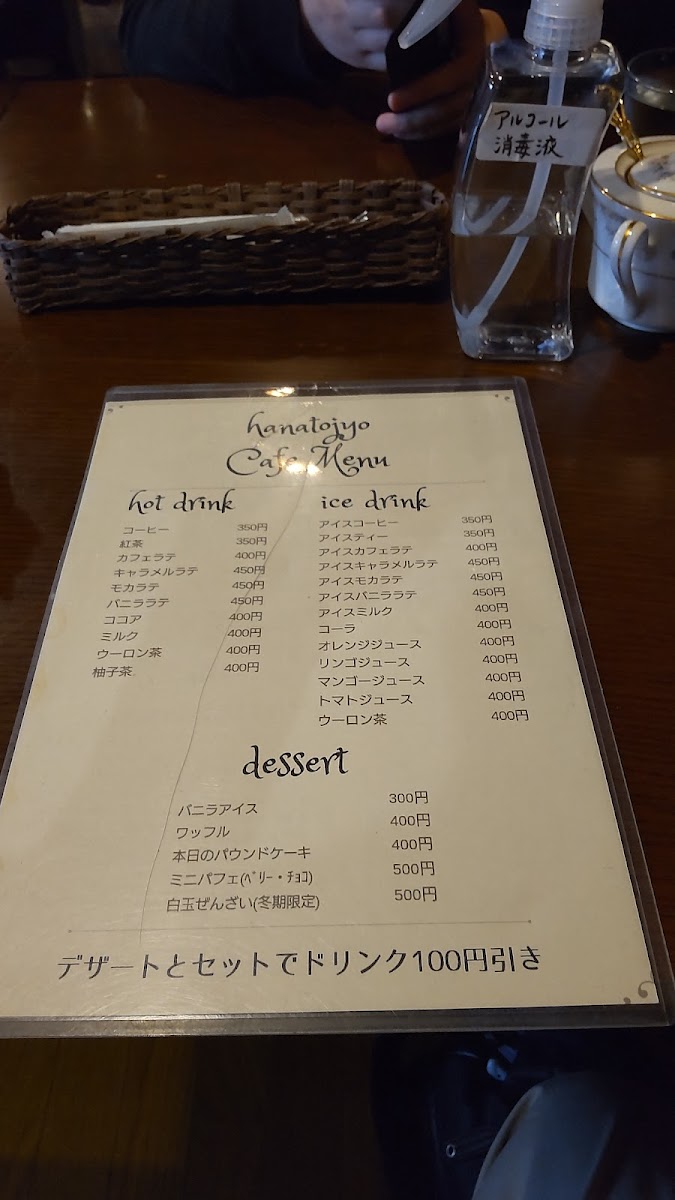 アルコール
消毒液
hanatojyo
Cafe Menu
hot drink
コーヒー 350円
紅茶 350円
カフェラテ 400円
キャラメルラテ 450円
モカラテ 450円
バニララテ 450円
ココア 400円
ミルク 400円
ウーロン茶 400円
柚子茶 400円
ice drink
アイスコーヒー 350円
アイスティー 350円
アイスカフェラテ 400円
アイスキャラメルラテ 450円
アイスモカラテ 450円
アイスバニララテ 450円
アイスミルク 400円
コーラ 400円
オレンジジュース 400円
リンゴジュース 400円
マンゴージュース 400円
トマトジュース 400円
ウーロン茶 400円
dessert
バニラアイス 300円
ワッフル 400円
本日のパウンドケーキ 400円
ミニパフェ(ﾍﾞﾘｰ・ﾁｮｺ) 500円
白玉ぜんざい(冬期限定) 500円
デザートとセットでドリンク100円引き